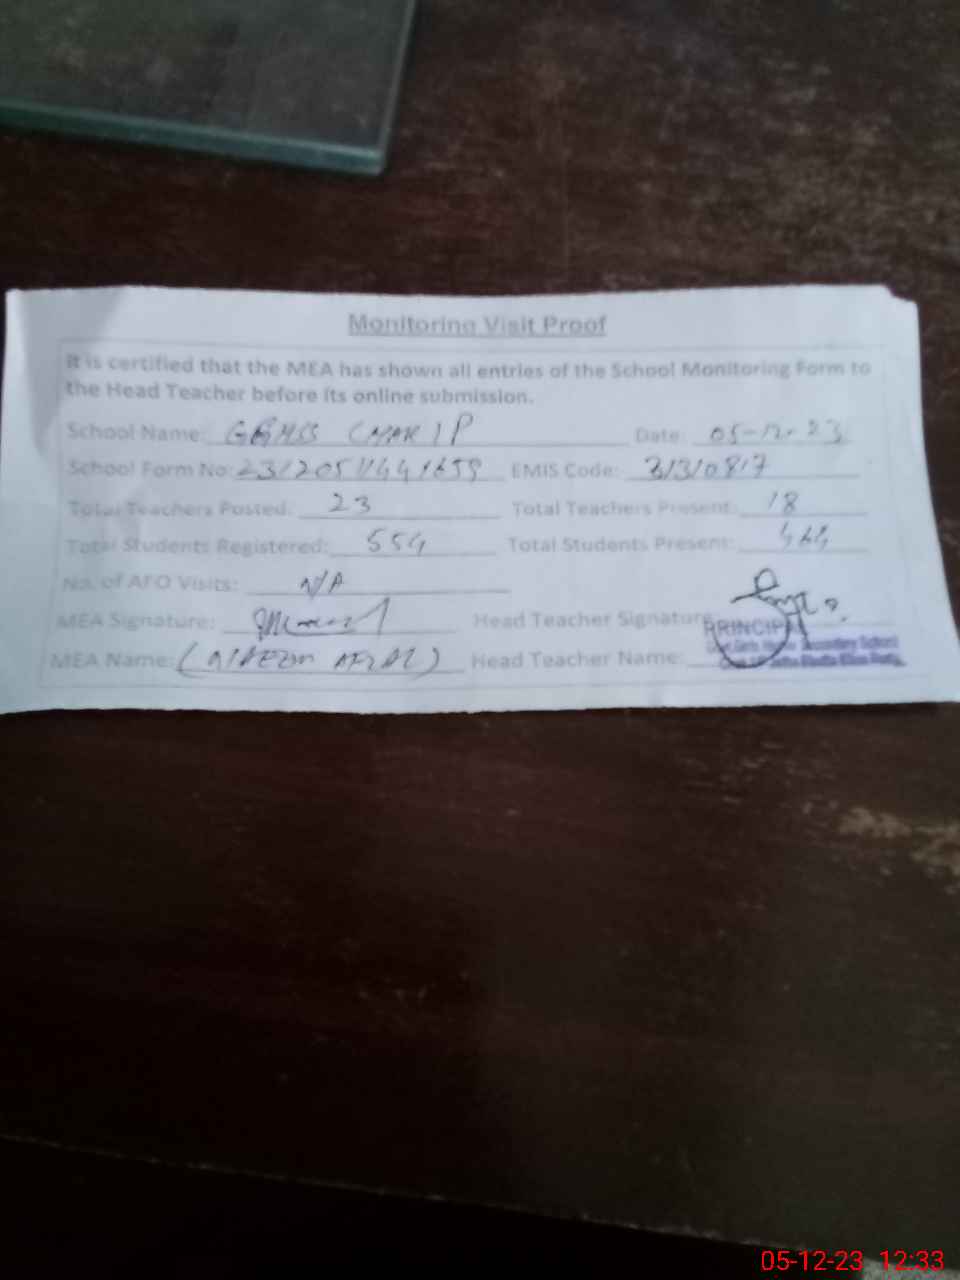 Monitoring Visit Proof
It is certified that the MEA has shown all entries of the School Monitoring Form to
the Head Teacher before its online submission.
School Name: GGHSS CHAK 1P Date: 05-12-23
School Form No: EMIS Code: 31310817
Total Teachers Posted: 23 Total Teachers Present: 18
Total Students Registered: 554 Total Students Present: 464
No. of AFO Visits: N/A
MEA Signature: Head Teacher Signature:
PRINCIPAL
MEA Name: Head Teacher Name:
05-12-23 12:33